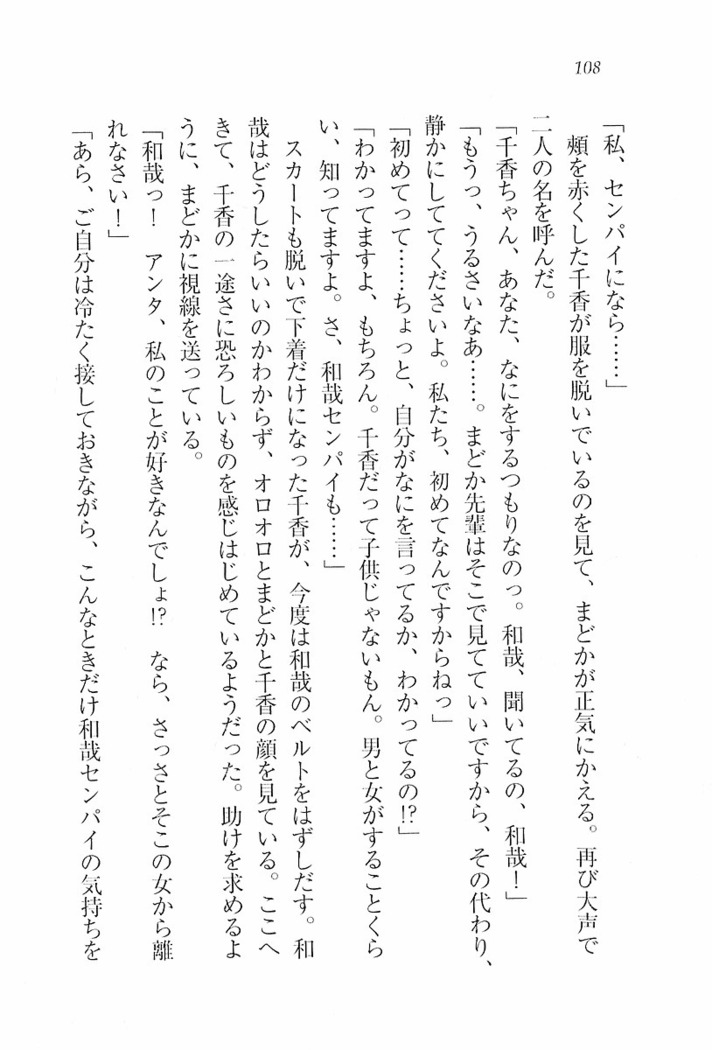 108
「私、センパイになら……」
　頰を赤くした千香が服を脱いでいるのを見て、まどかが正気にかえる。再び大声で
二人の名を呼んだ。
「千香ちゃん、あなた、なにをするつもりなのっ。和哉、聞いてるの、和哉！」
「もうっ、うるさいなあ……。まどか先輩はそこで見てていいですから、その代わり、
静かにしててくださいよ。私たち、初めてなんですからねっ」
「初めてって……ちょっと、自分がなにを言ってるか、わかってるの!?」
「わかってますよ、もちろん。千香だって子供じゃないもん。男と女がすることくら
い、知ってますよ。さ、和哉センパイも……」
　スカートも脱いで下着だけになった千香が、今度は和哉のベルトをはずしだす。和
哉はどうしたらいいのかわからず、オロオロとまどかと千香の顔を見ている。ここへ
きて、千香の一途さに恐ろしいものを感じはじめているようだった。助けを求めるよ
うに、まどかに視線を送っている。
「和哉っ！　アンタ、私のことが好きなんでしょ!?　なら、さっさとそこの女から離
れなさい！」
「あら、ご自分は冷たく接しておきながら、こんなときだけ和哉センパイの気持ちを